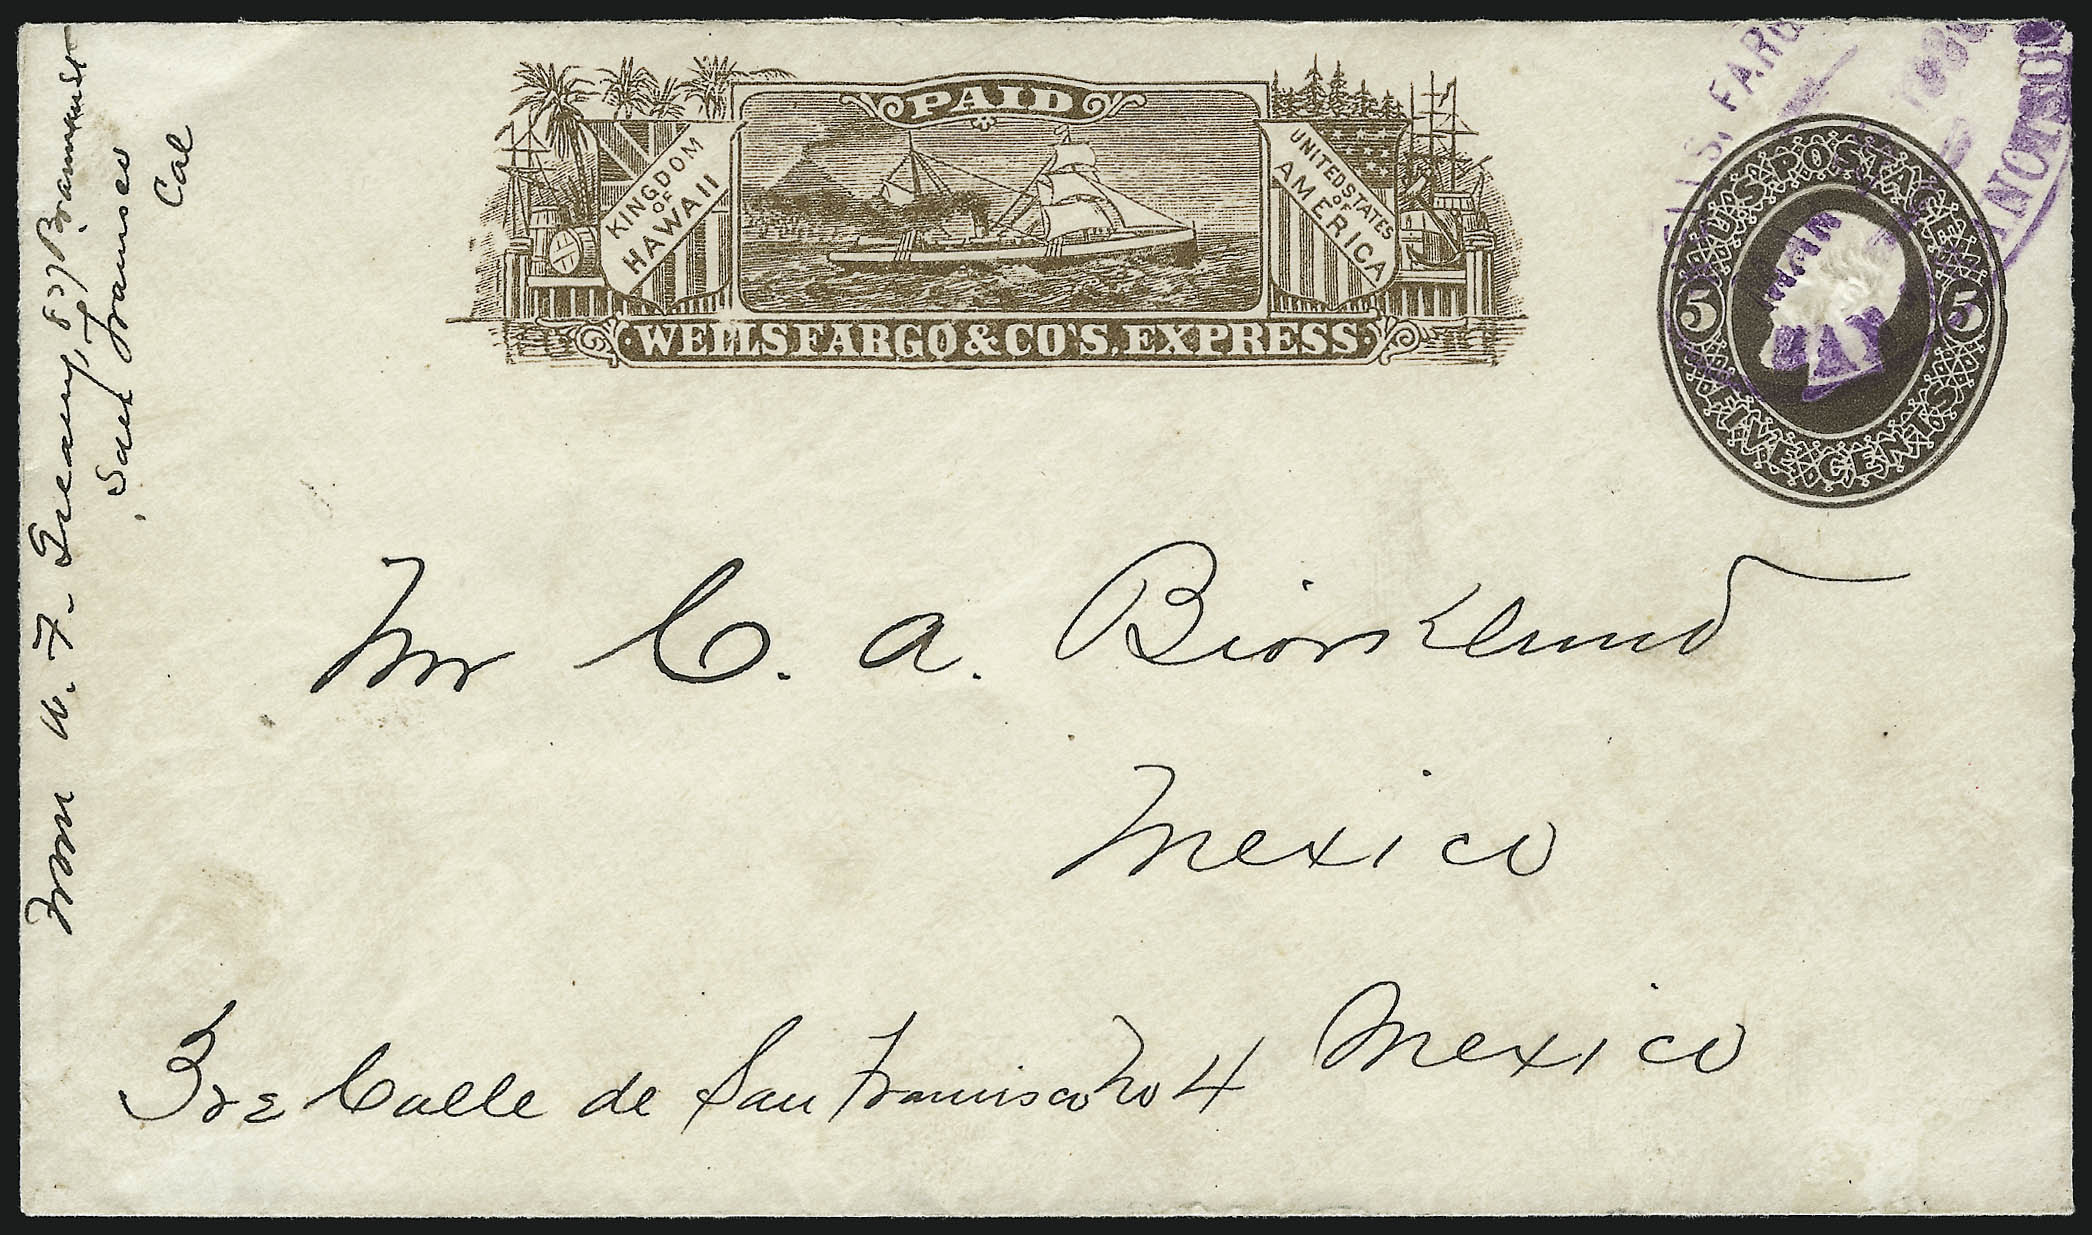 From W. F. Treany, 827 Brannan St
San Francisco
Cal
PAID
KINGDOM
OF
HAWAII
UNITED STATES
OF
AMERICA
WELLS FARGO & CO'S. EXPRESS.
U.S. POSTAGE
5 5
FIVE CENTS
WELLS, FARGO
MAR
Mr C. A. Biorklund
Mexico
3re Calle de San Francisco No 4 Mexico